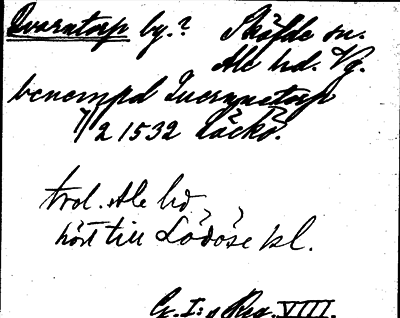 Qvarntorp by.? Skölde sn.
Ale hd. Vg.
benempd Quernnetorp
7/2 1532 Läckö.
trol. Ale hd,
hört till Lödöse kl.
G. I:s Reg. VIII.